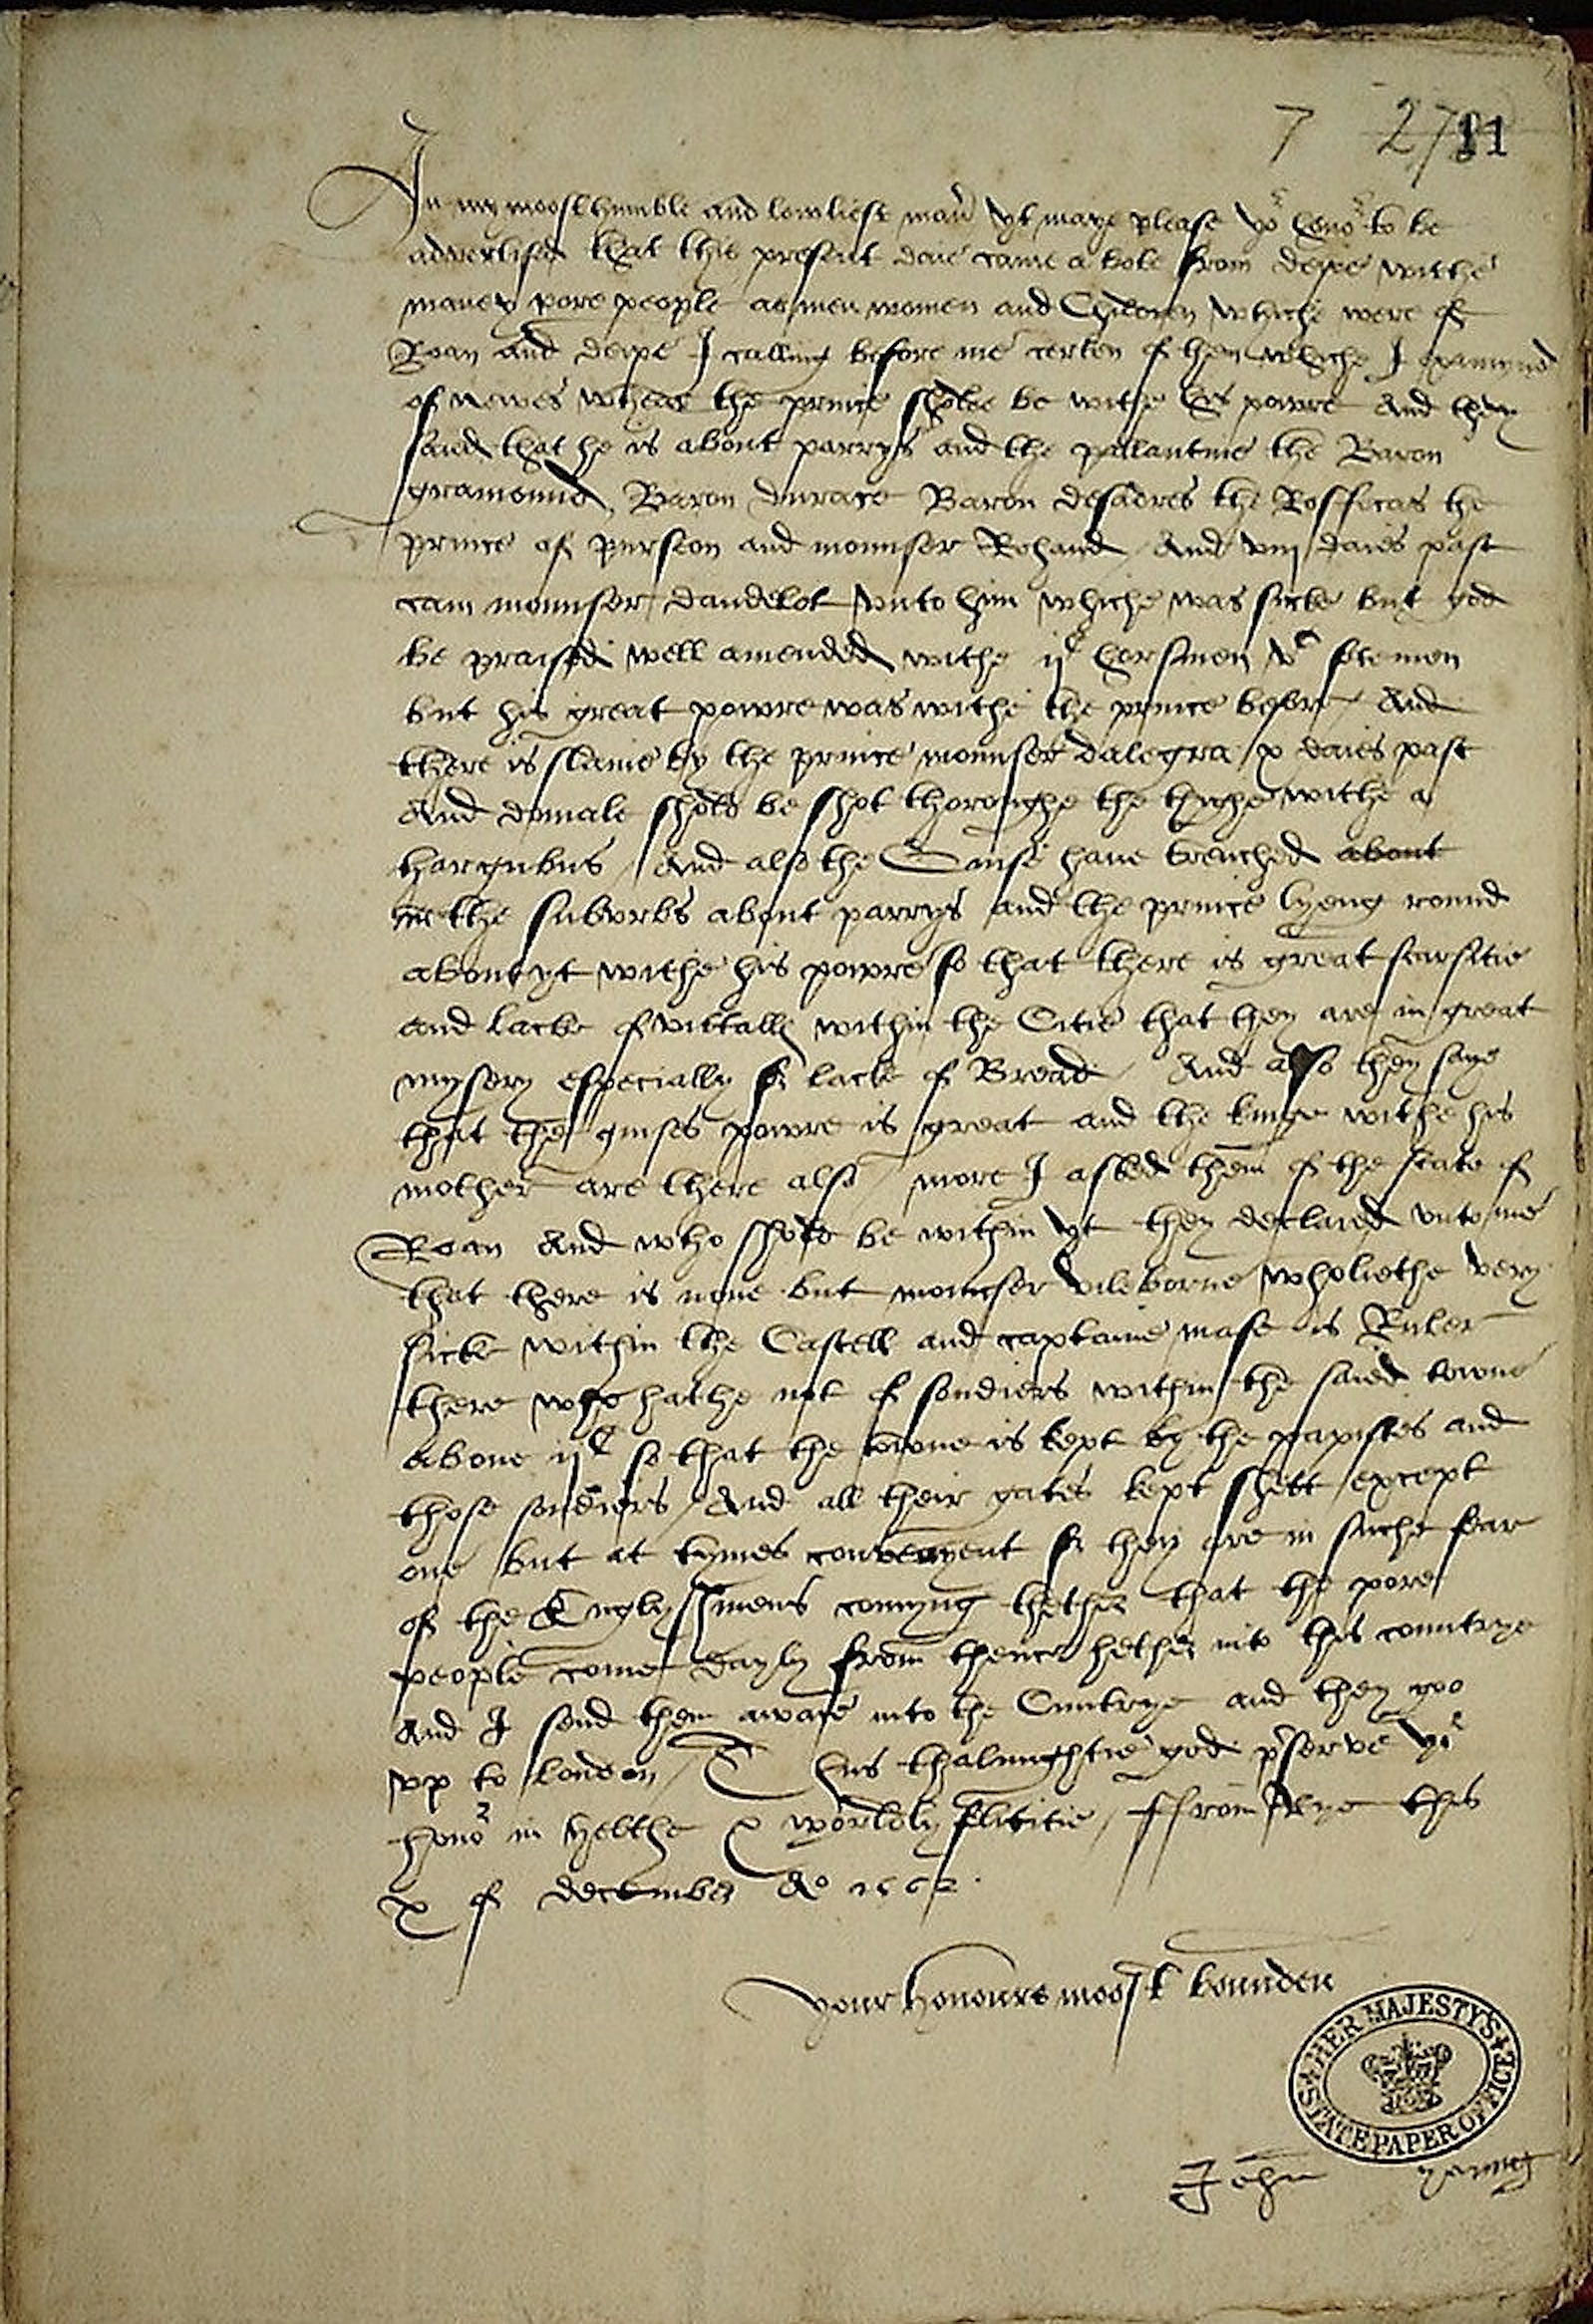 7 278 11
In my moost humble and lowliest man̄ yt maye please yor hono^r to be
advertised that this present daie came a bote from depe withe
maney pore people as men women and Children whiche were of
Roan and depe I calling before me certen of them whiche I examyned
of newes wheare the prince sholde be withe his powre And they
saied that he is about parrys and the pallantine the Baron
gramonnd, Baron durace Baron desadres the Rosficas the
prince of purseon and mounser Rohand / And viij daies past
cam mounser dandelot vnto him whiche was sicke but god
be praised well amended withe ij^c horsmen v^c fotemen
but his great powre was withe the prince before / And
there is slaine by the prince mounser dalegra x daies past
And domale sholde be shot thoroughe the thyghe withe a
hargubus / And also the Guise haue trenched about
in the suburbs about parrys and the prince lyeng round
about yt withe his powre so that there is great scarsitie
and lacke of vittalls within the Citie that they are in great
mysery especially for lacke of Bread / And also they saye
that the guises powre is great and the kinge withe his
mother are there also / more I asked them of the state of
Roan And who sholde be within yt they declared vnto me
that there is none but mounser vileborne who liethe very
sicke within the Castell and captaine mase is Ruler
there who hathe not of soudiers within the saied towne
aboue ij^c so that the towne is kept by the papistes and
those soudiers / And all their gates kept shett except
one but at tymes convenyent for they are in suche fear
of the Englyshmens comyng thether that the pore
people come dayly from thence hether into this countrye
And I send them awaie into the Cuntrye and they goo
vp to london / Thus thalmightie god p^rserve yo^r
hono^r in helthe & worldly felicitie / ffrom Rye this
x of december A^o 1562.
your honours moost bounden
HER MAJESTY'S STATE PAPER OFFICE
John yonng